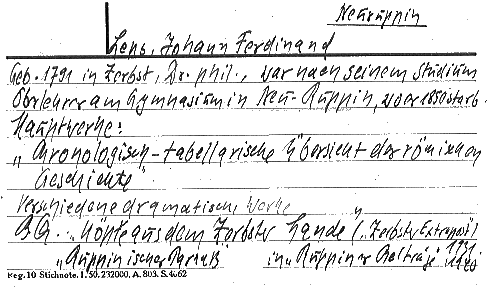 Neuruppin
Lens, Johann Ferdinand
Geb. 1791 in Zerbst, Dr. phil., war nach seinem Studium
Oberlehrer am Gymnasium in Neu-Ruppin, wo er 1850 starb.
Hauptwerke:
„Chronologisch-tabellarische Übersicht der römischen
Geschichte"
Verschiedene dramatische Werke
BG. „Köpfe aus dem Zerbster Lande" („Zerbster Extrapost")
„Ruppinischer Parnaß" in „Ruppiner Beiträge"
Reg. 10 Stichnote. I. 50. 232000. A. 803. S. 4062